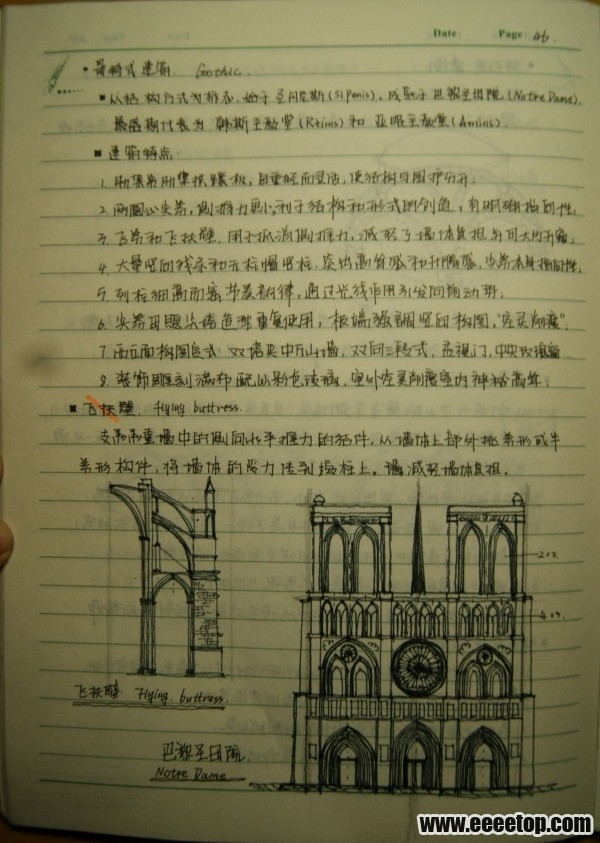 Date: Page: 46.
• 哥特式建筑. Gothic.
■ 从结构方式为标志, 始于圣丹尼斯(St Denis), 成熟于巴黎圣母院(Notre Dame).
最盛期代表为 韩斯主教堂(Reims) 和 亚眠主教堂(Amins).
■ 建筑特点:
1. 肋骨券肋骨拱 自重轻而灵活, 使结构与围护分开.
2. 两圆心尖券, 侧推力更小, 利于结构和形式的创造, 有明确指向性.
3. 飞券和飞扶壁. 用于抵消侧推力, 减轻了墙体负担
4. 大量竖向线条和无柱帽竖柱, 突出高耸感和升腾感, 尖券本身指向性.
5. 列柱细高而密 节奏韵律, 通过光线作用引发向前动势.
6. 尖券 造型重复使用, 极端强调竖向构图,
7. 西立面构图范式: 双塔夹中厅山墙, 双向三段式, 透视门, 中央玫瑰窗
8. 装饰雕刻满布 配以彩色玻璃, 室外 室内神秘高耸.
■ 飞扶壁. flying buttress.
支承承重墙中的侧向水平推力的结件, 从墙体上部外挑券形或半
券形构件, 将墙体的受力传到 柱上. 减轻墙体负担.
202.
403.
飞扶壁. Flying buttress.
巴黎圣母院.
Notre Dame
www.eeeetop.com